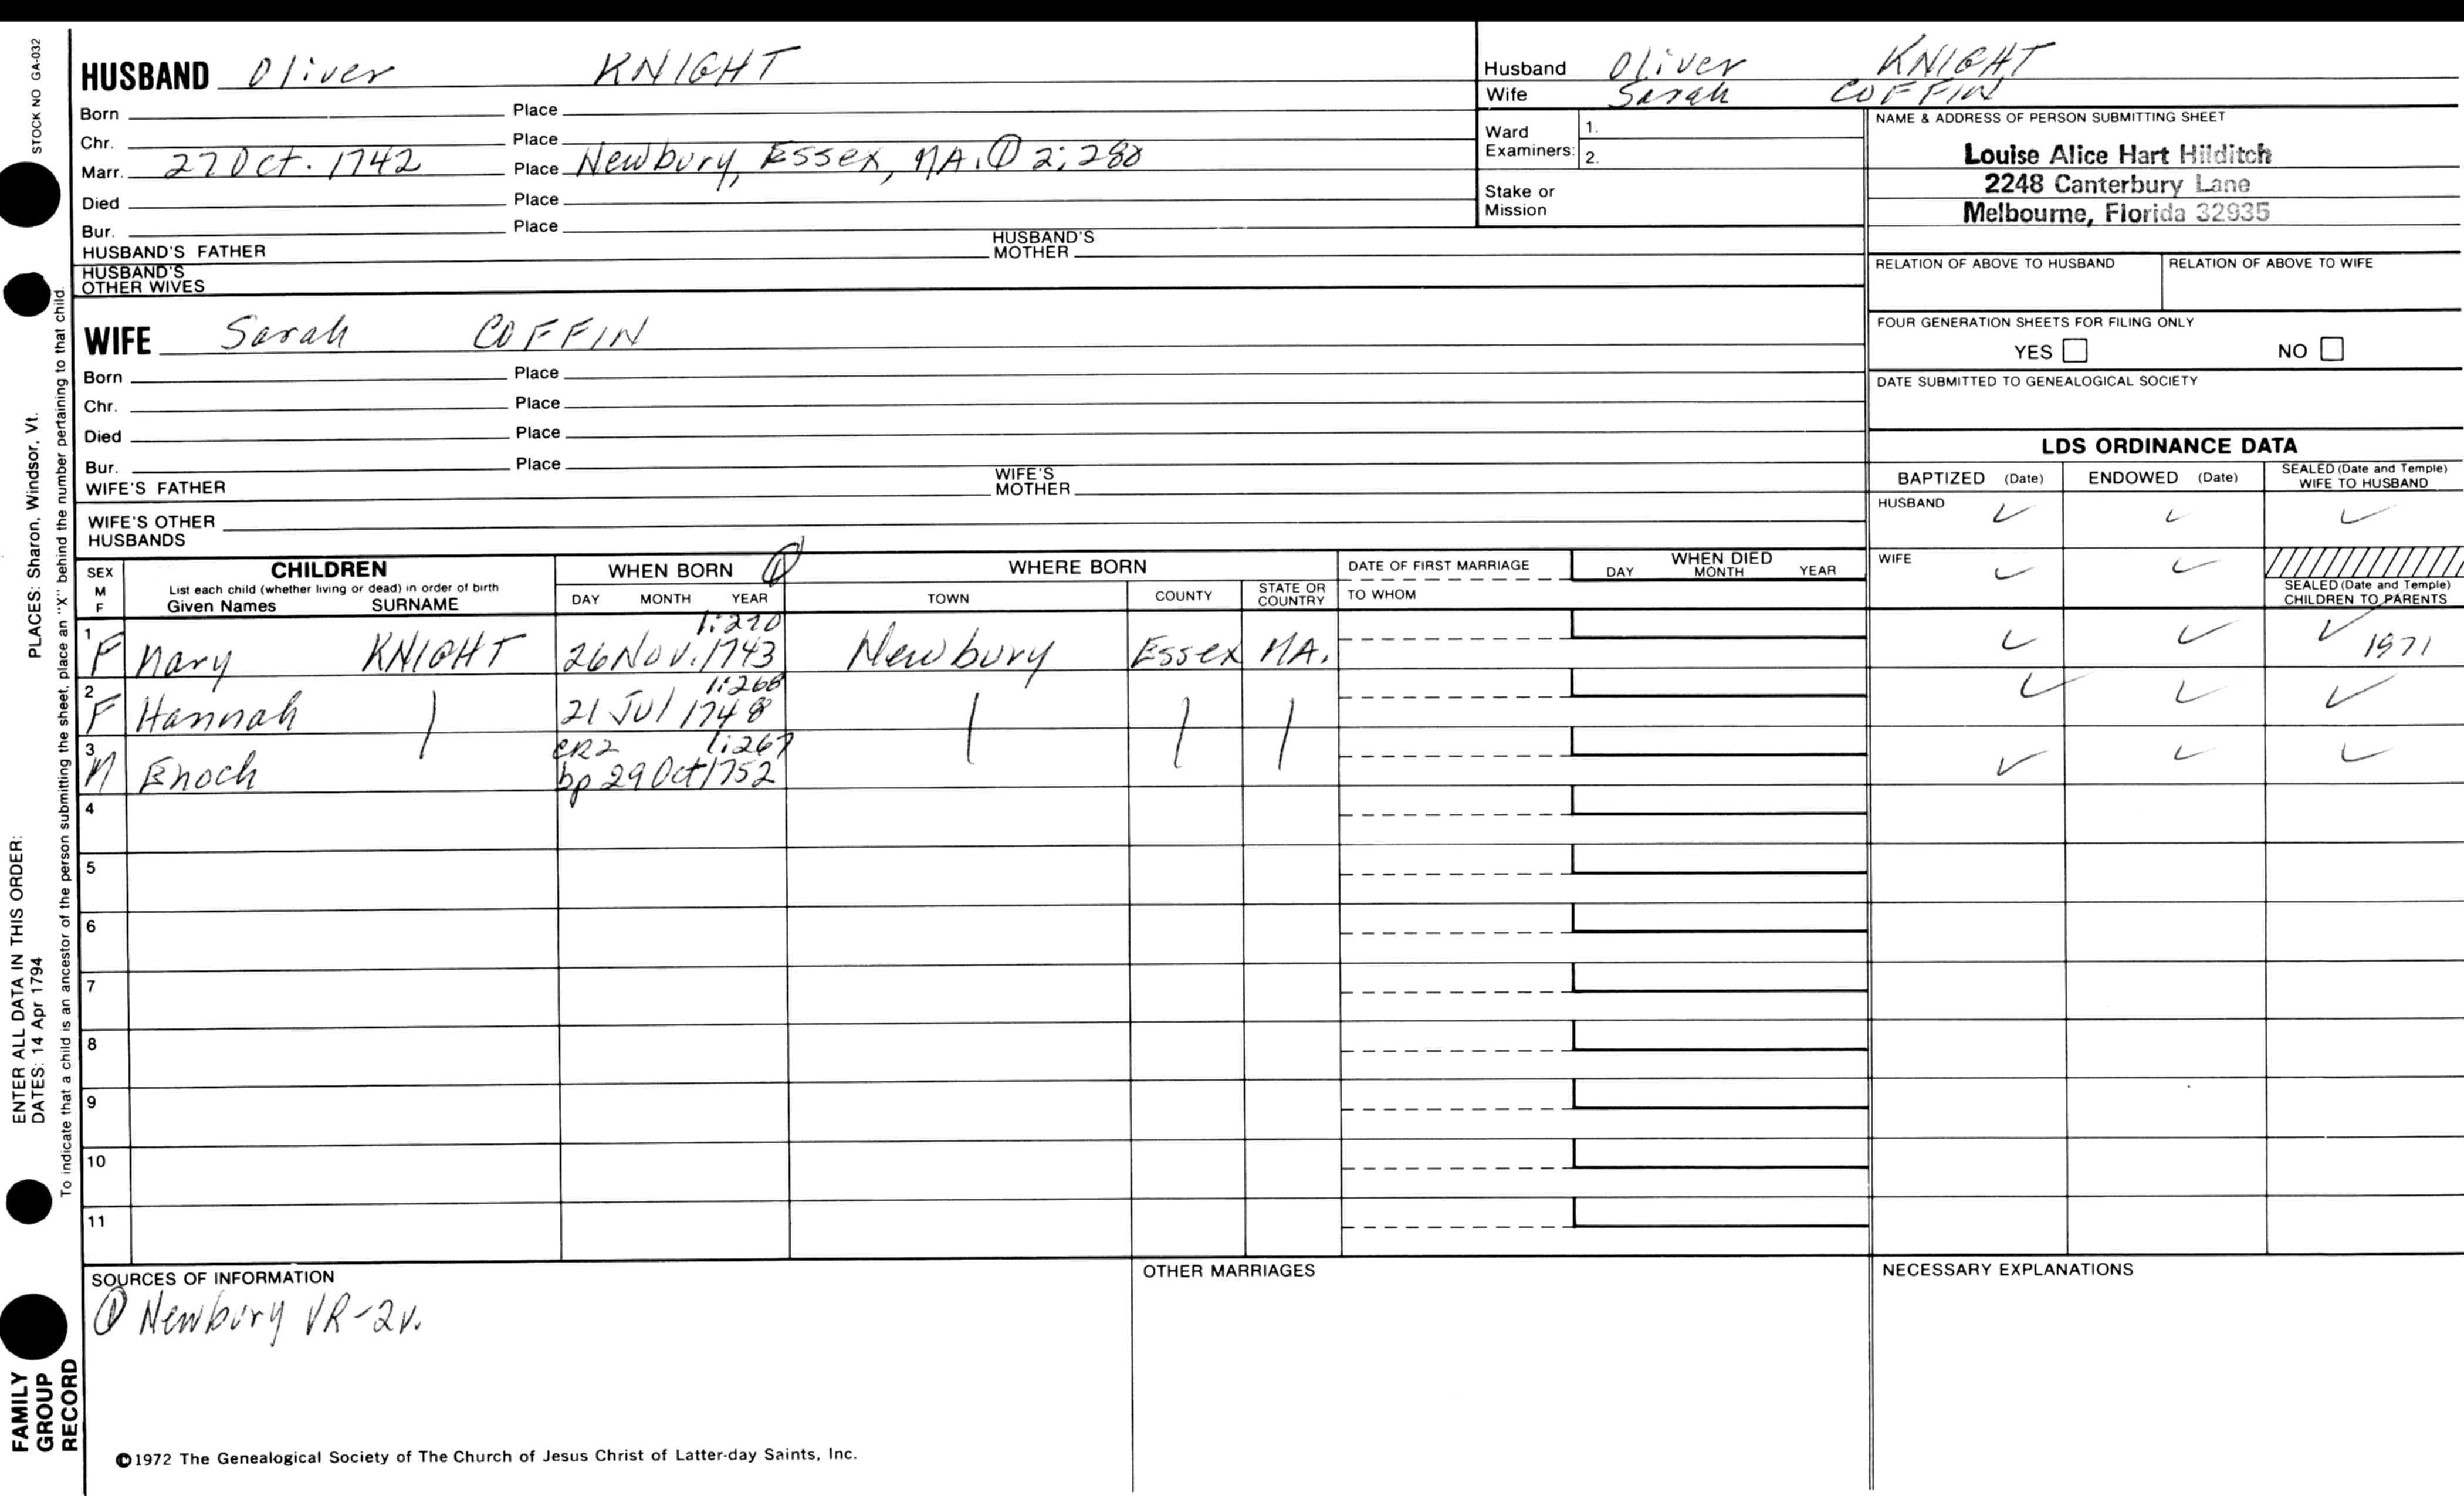 STOCK NO GA-032
PLACES: Sharon, Windsor, Vt.
ENTER ALL DATA IN THIS ORDER:
DATES: 14 Apr 1794
To indicate that a child is an ancestor of the person submitting the sheet, place an "X" behind the number pertaining to that child.
FAMILY GROUP RECORD
HUSBAND Oliver KNIGHT
Born Place
Chr. Place
Marr. 27 Oct. 1742 Place Newbury, Essex, MA. ① 2:280
Died Place
Bur. Place
HUSBAND'S FATHER HUSBAND'S MOTHER
HUSBAND'S OTHER WIVES
WIFE Sarah COFFIN
Born Place
Chr. Place
Died Place
Bur. Place
WIFE'S FATHER WIFE'S MOTHER
WIFE'S OTHER HUSBANDS
Husband Oliver KNIGHT
Wife Sarah COFFIN
Ward Examiners: 1.
2.
Stake or Mission
NAME & ADDRESS OF PERSON SUBMITTING SHEET
Louise Alice Hart Hilditch
2248 Canterbury Lane
Melbourne, Florida 32935
RELATION OF ABOVE TO HUSBAND RELATION OF ABOVE TO WIFE
FOUR GENERATION SHEETS FOR FILING ONLY
YES NO
DATE SUBMITTED TO GENEALOGICAL SOCIETY
LDS ORDINANCE DATA
BAPTIZED (Date) ENDOWED (Date) SEALED (Date and Temple) WIFE TO HUSBAND
HUSBAND ✓ ✓ ✓
WIFE ✓ ✓
SEALED (Date and Temple) CHILDREN TO PARENTS
SEX M F CHILDREN WHEN BORN ① WHERE BORN DATE OF FIRST MARRIAGE WHEN DIED
List each child (whether living or dead) in order of birth
Given Names SURNAME DAY MONTH YEAR TOWN COUNTY STATE OR COUNTRY TO WHOM DAY MONTH YEAR
1:270
1 F Mary KNIGHT 26 Nov. 1743 Newbury Essex MA. ✓ ✓ ✓ 1971
1:268
2 F Hannah | 21 Jul 1748 | | | ✓ ✓ ✓
CR2 1:267
3 M Enoch bp 29 Oct 1752 ✓ ✓ ✓
4
5
6
7
8
9
10
11
SOURCES OF INFORMATION OTHER MARRIAGES NECESSARY EXPLANATIONS
① Newbury VR-2v.
©1972 The Genealogical Society of The Church of Jesus Christ of Latter-day Saints, Inc.